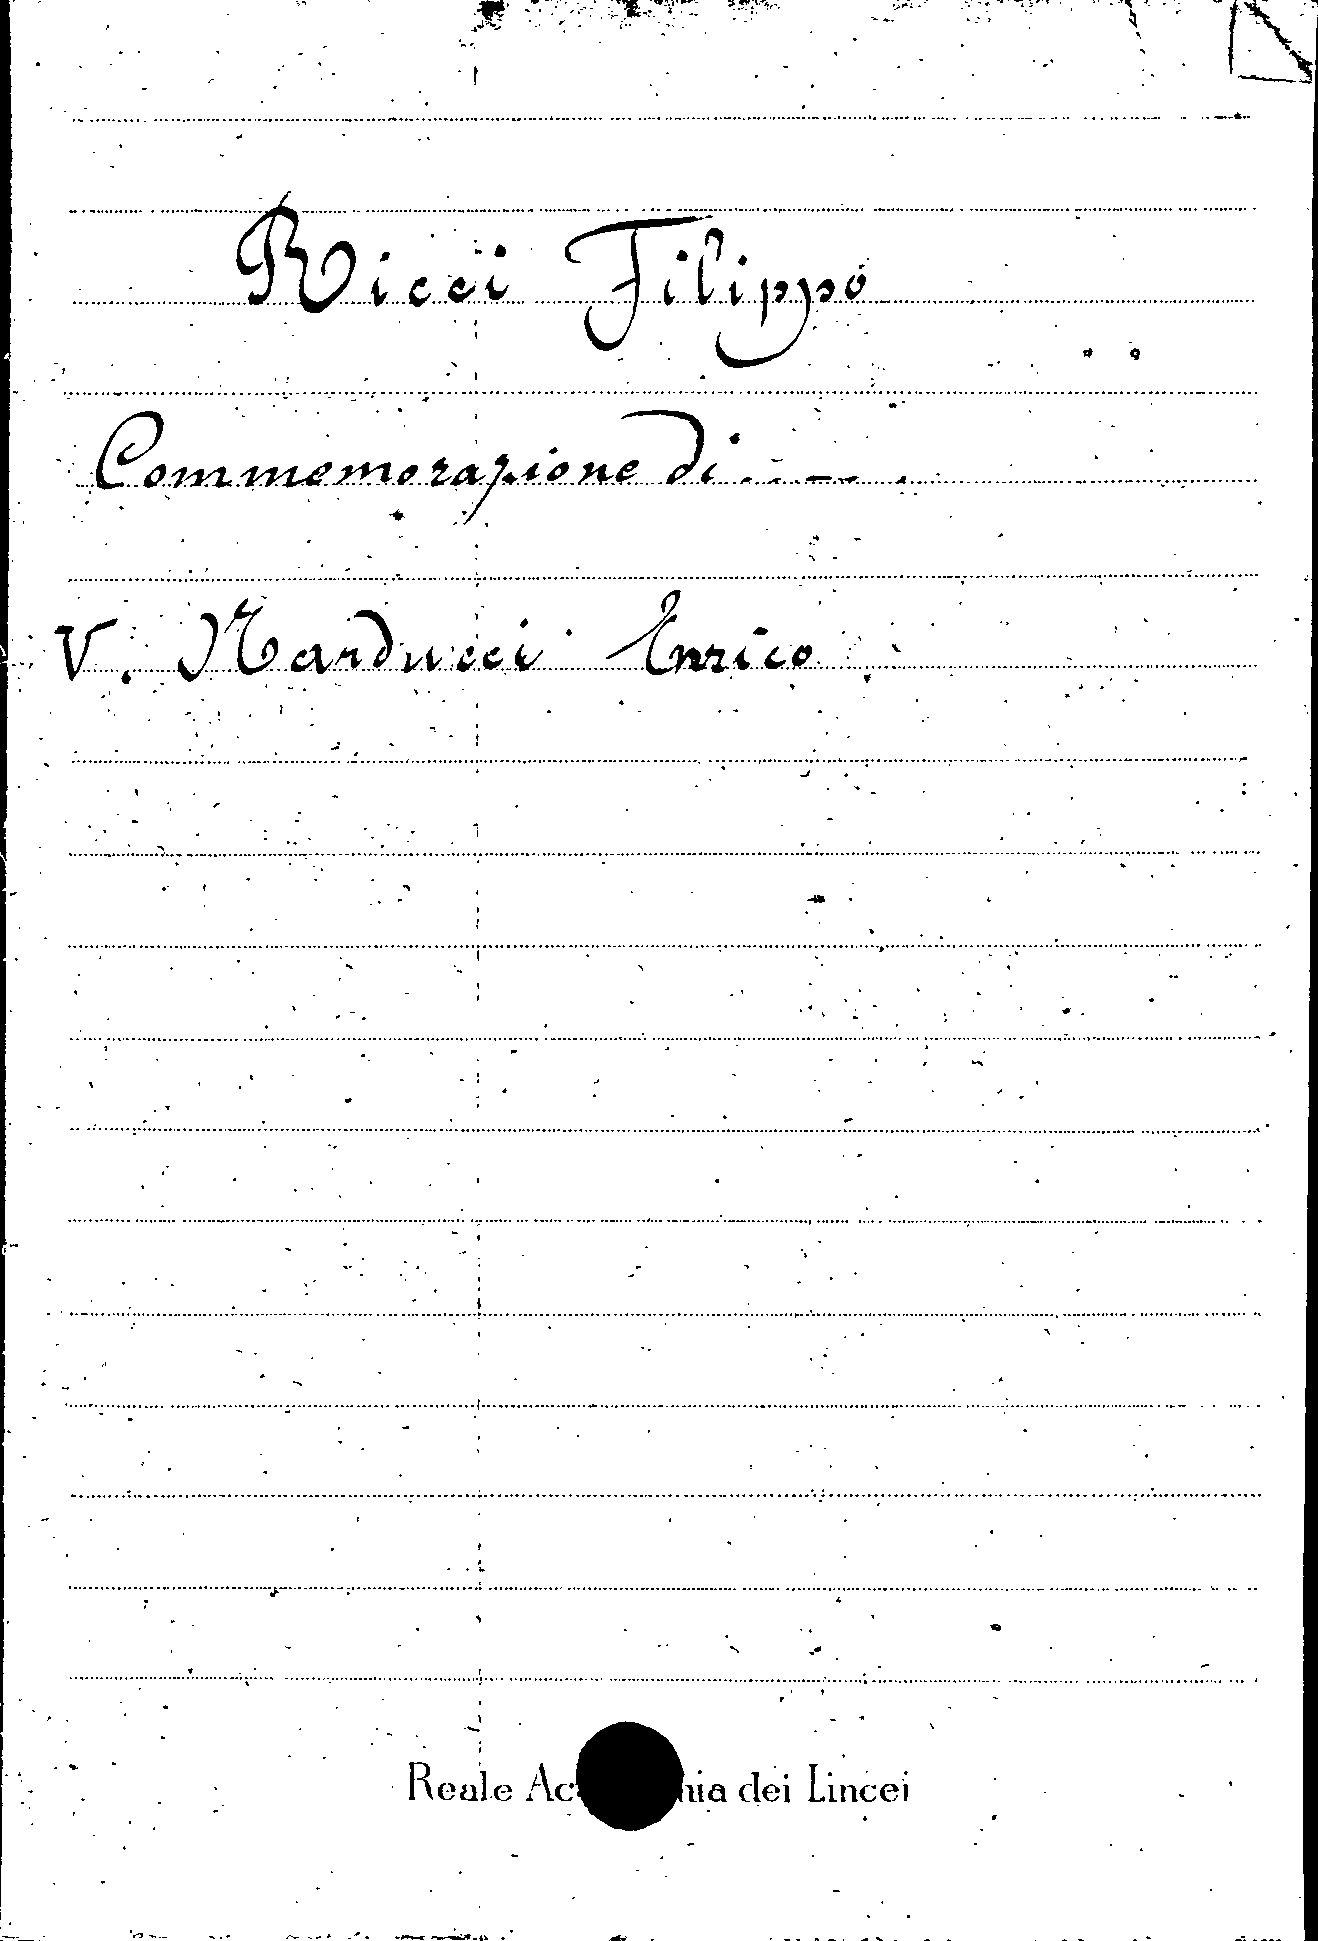 Ricci Filippo
Commemorazione di . . – – .
V. Narducci Enrico
Reale Acc hia dei Lincei